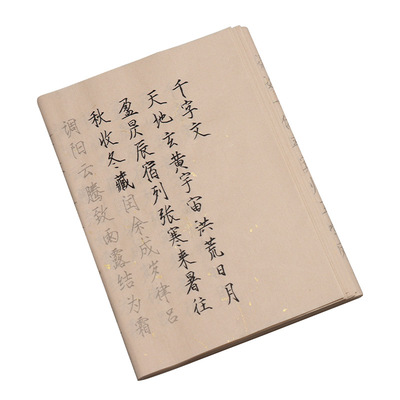 千字文
天地玄黄宇宙洪荒日月
盈昃辰宿列张寒来暑往
秋收冬藏闰余成岁律吕
调阳云腾致雨露结为霜